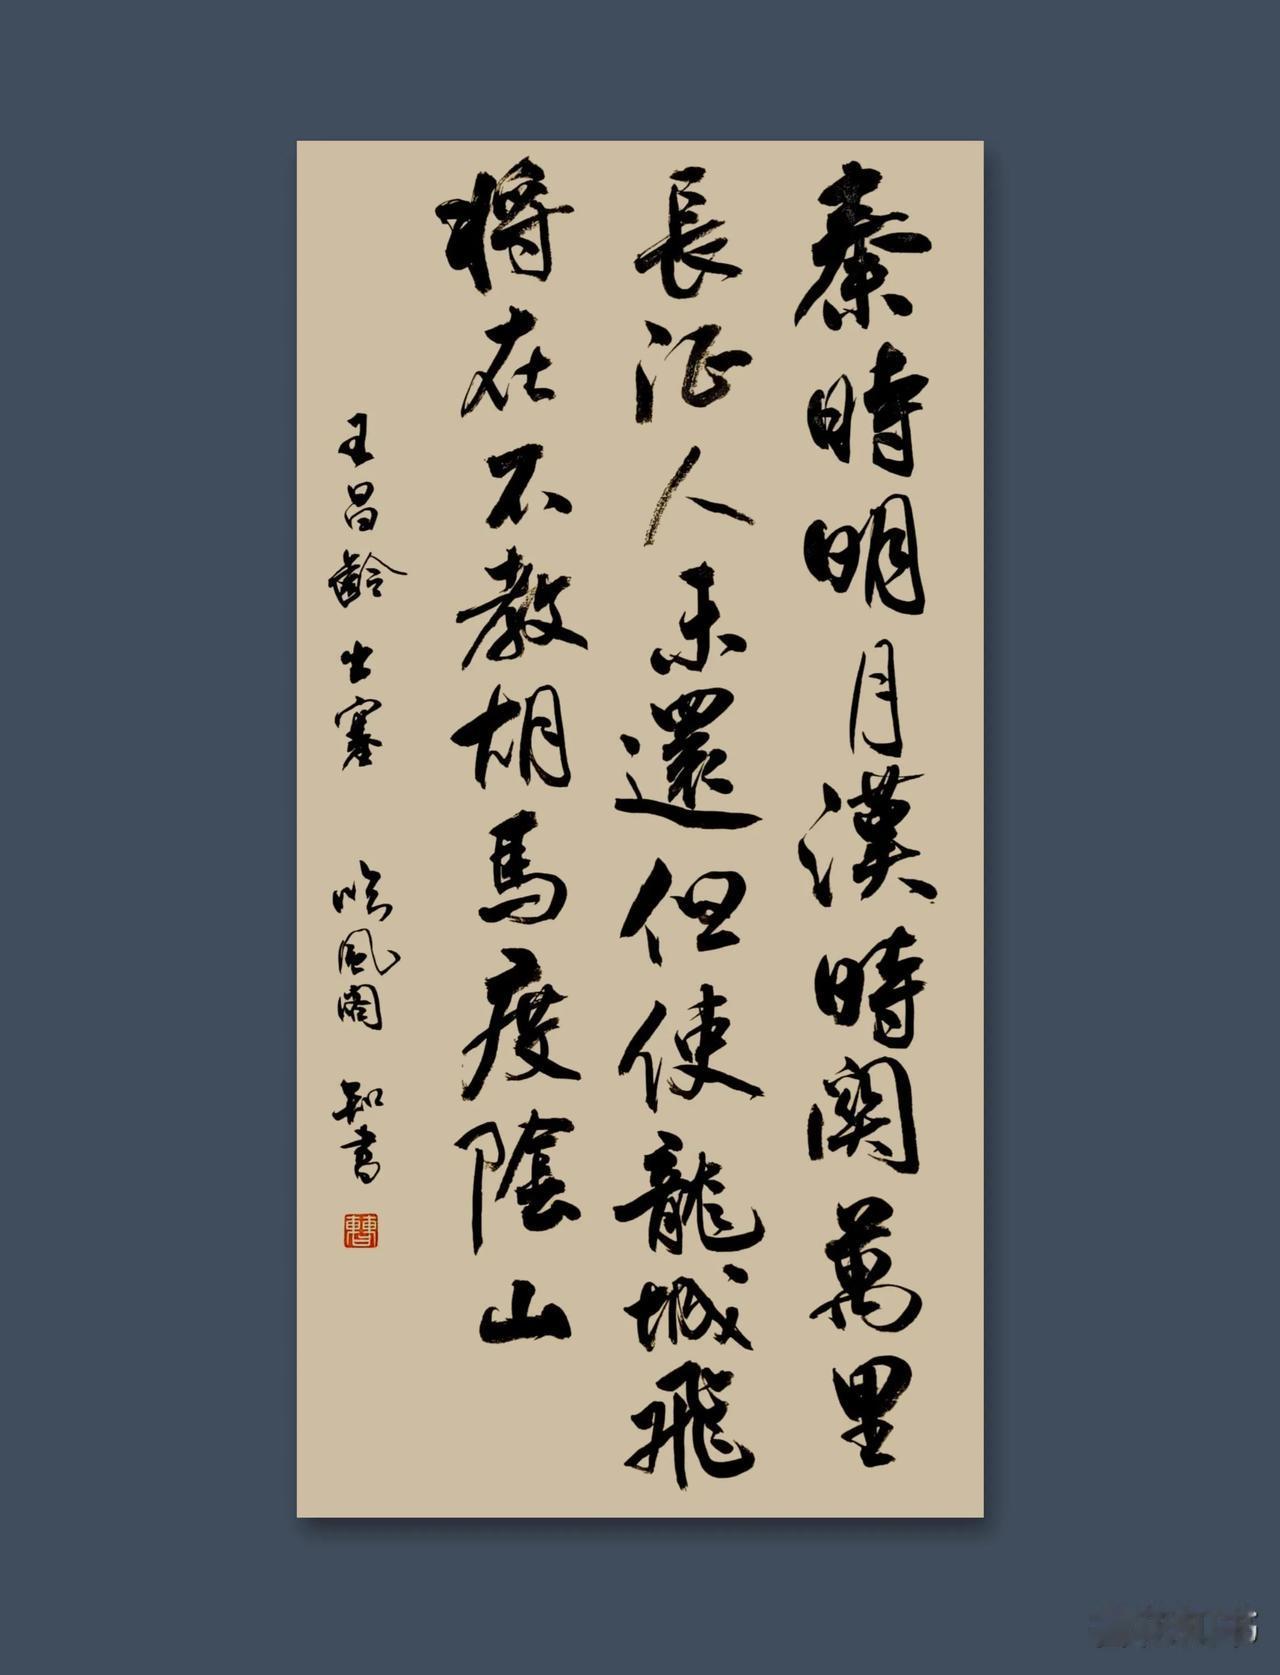 秦時明月漢時関萬里
長征人未還但使龍城飛
将在不教胡馬度陰山
王昌齡 出塞 吟風閣 知書